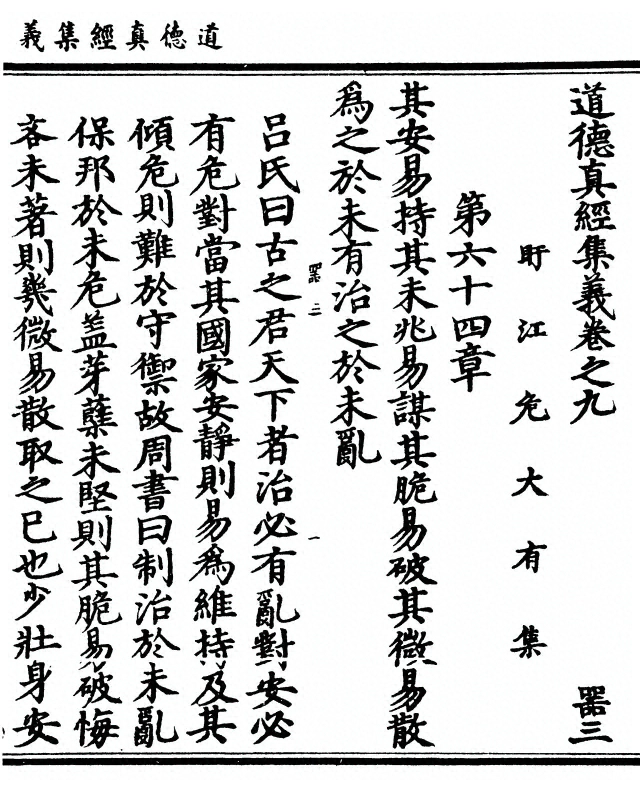 道德真經集義
道德真經集義卷之九
器三
盱江危大有集
第六十四章
其安易持其未兆易謀其脆易破其微易散
爲之於未有治之於未亂
器三
一
呂氏曰古之君天下者治必有亂對安必
有危對當其國家安靜則易爲維持及其
傾危則難於守禦故周書曰制治於未亂
保邦於未危蓋芽蘖未堅則其脆易破悔
吝未著則幾微易散取之已也少壯身安